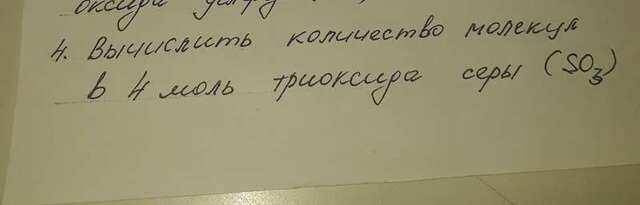 оксида
4. Вычислить количество молекул
в 4 моль триоксида серы (SO3)